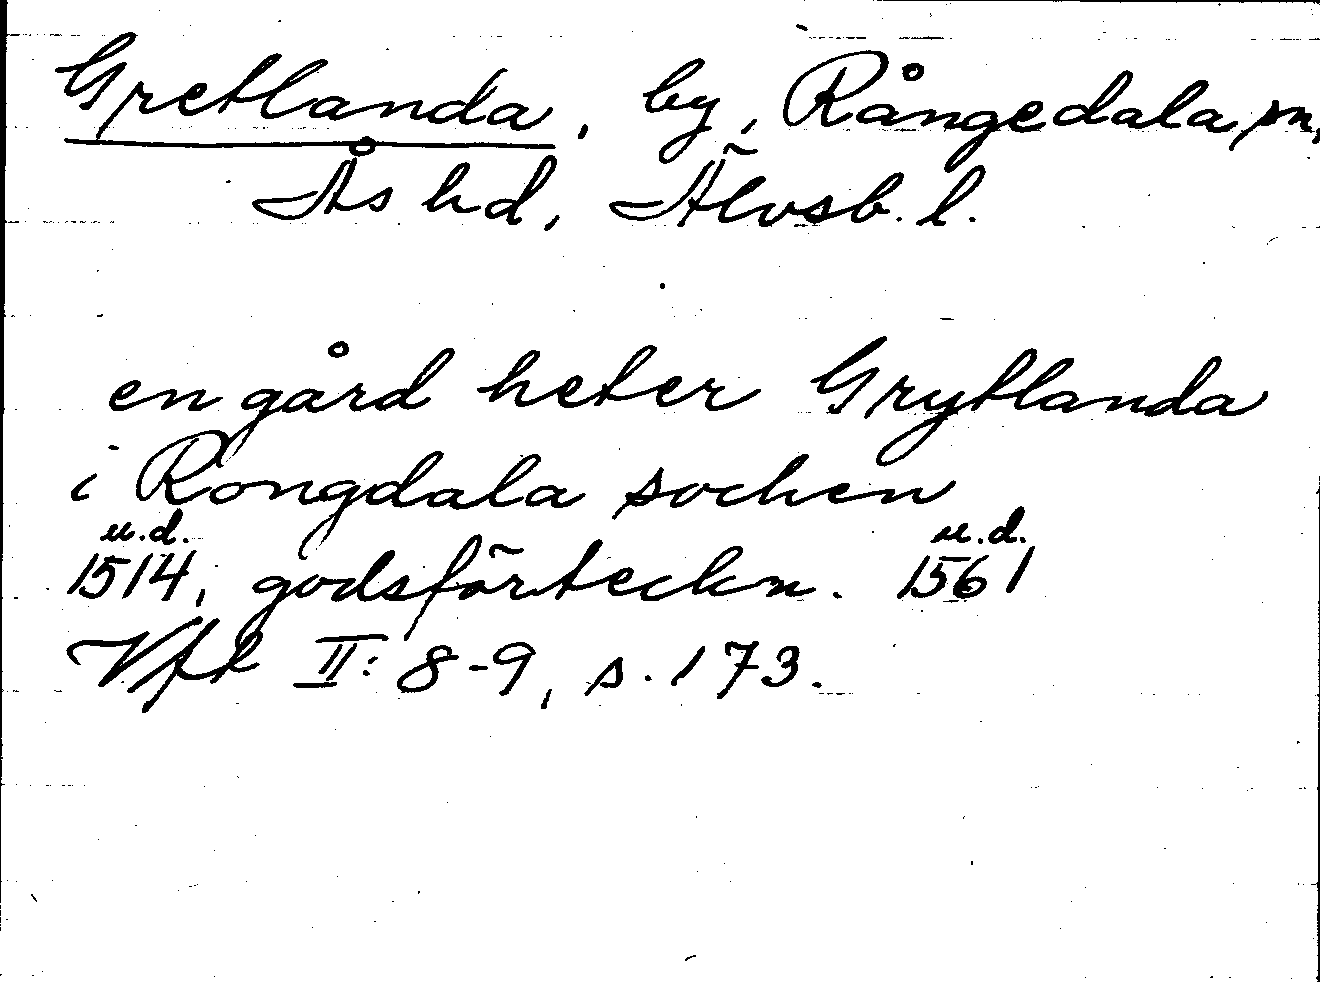 Gretlanda, by, Rångedala sn,
Ås hd, Älvsb. l.
en gård heter Grytlanda
i Rongdala sochen
u.d. u.d.
1514, godsförteckn. 1561
Vfk II: 8-9, s. 173.